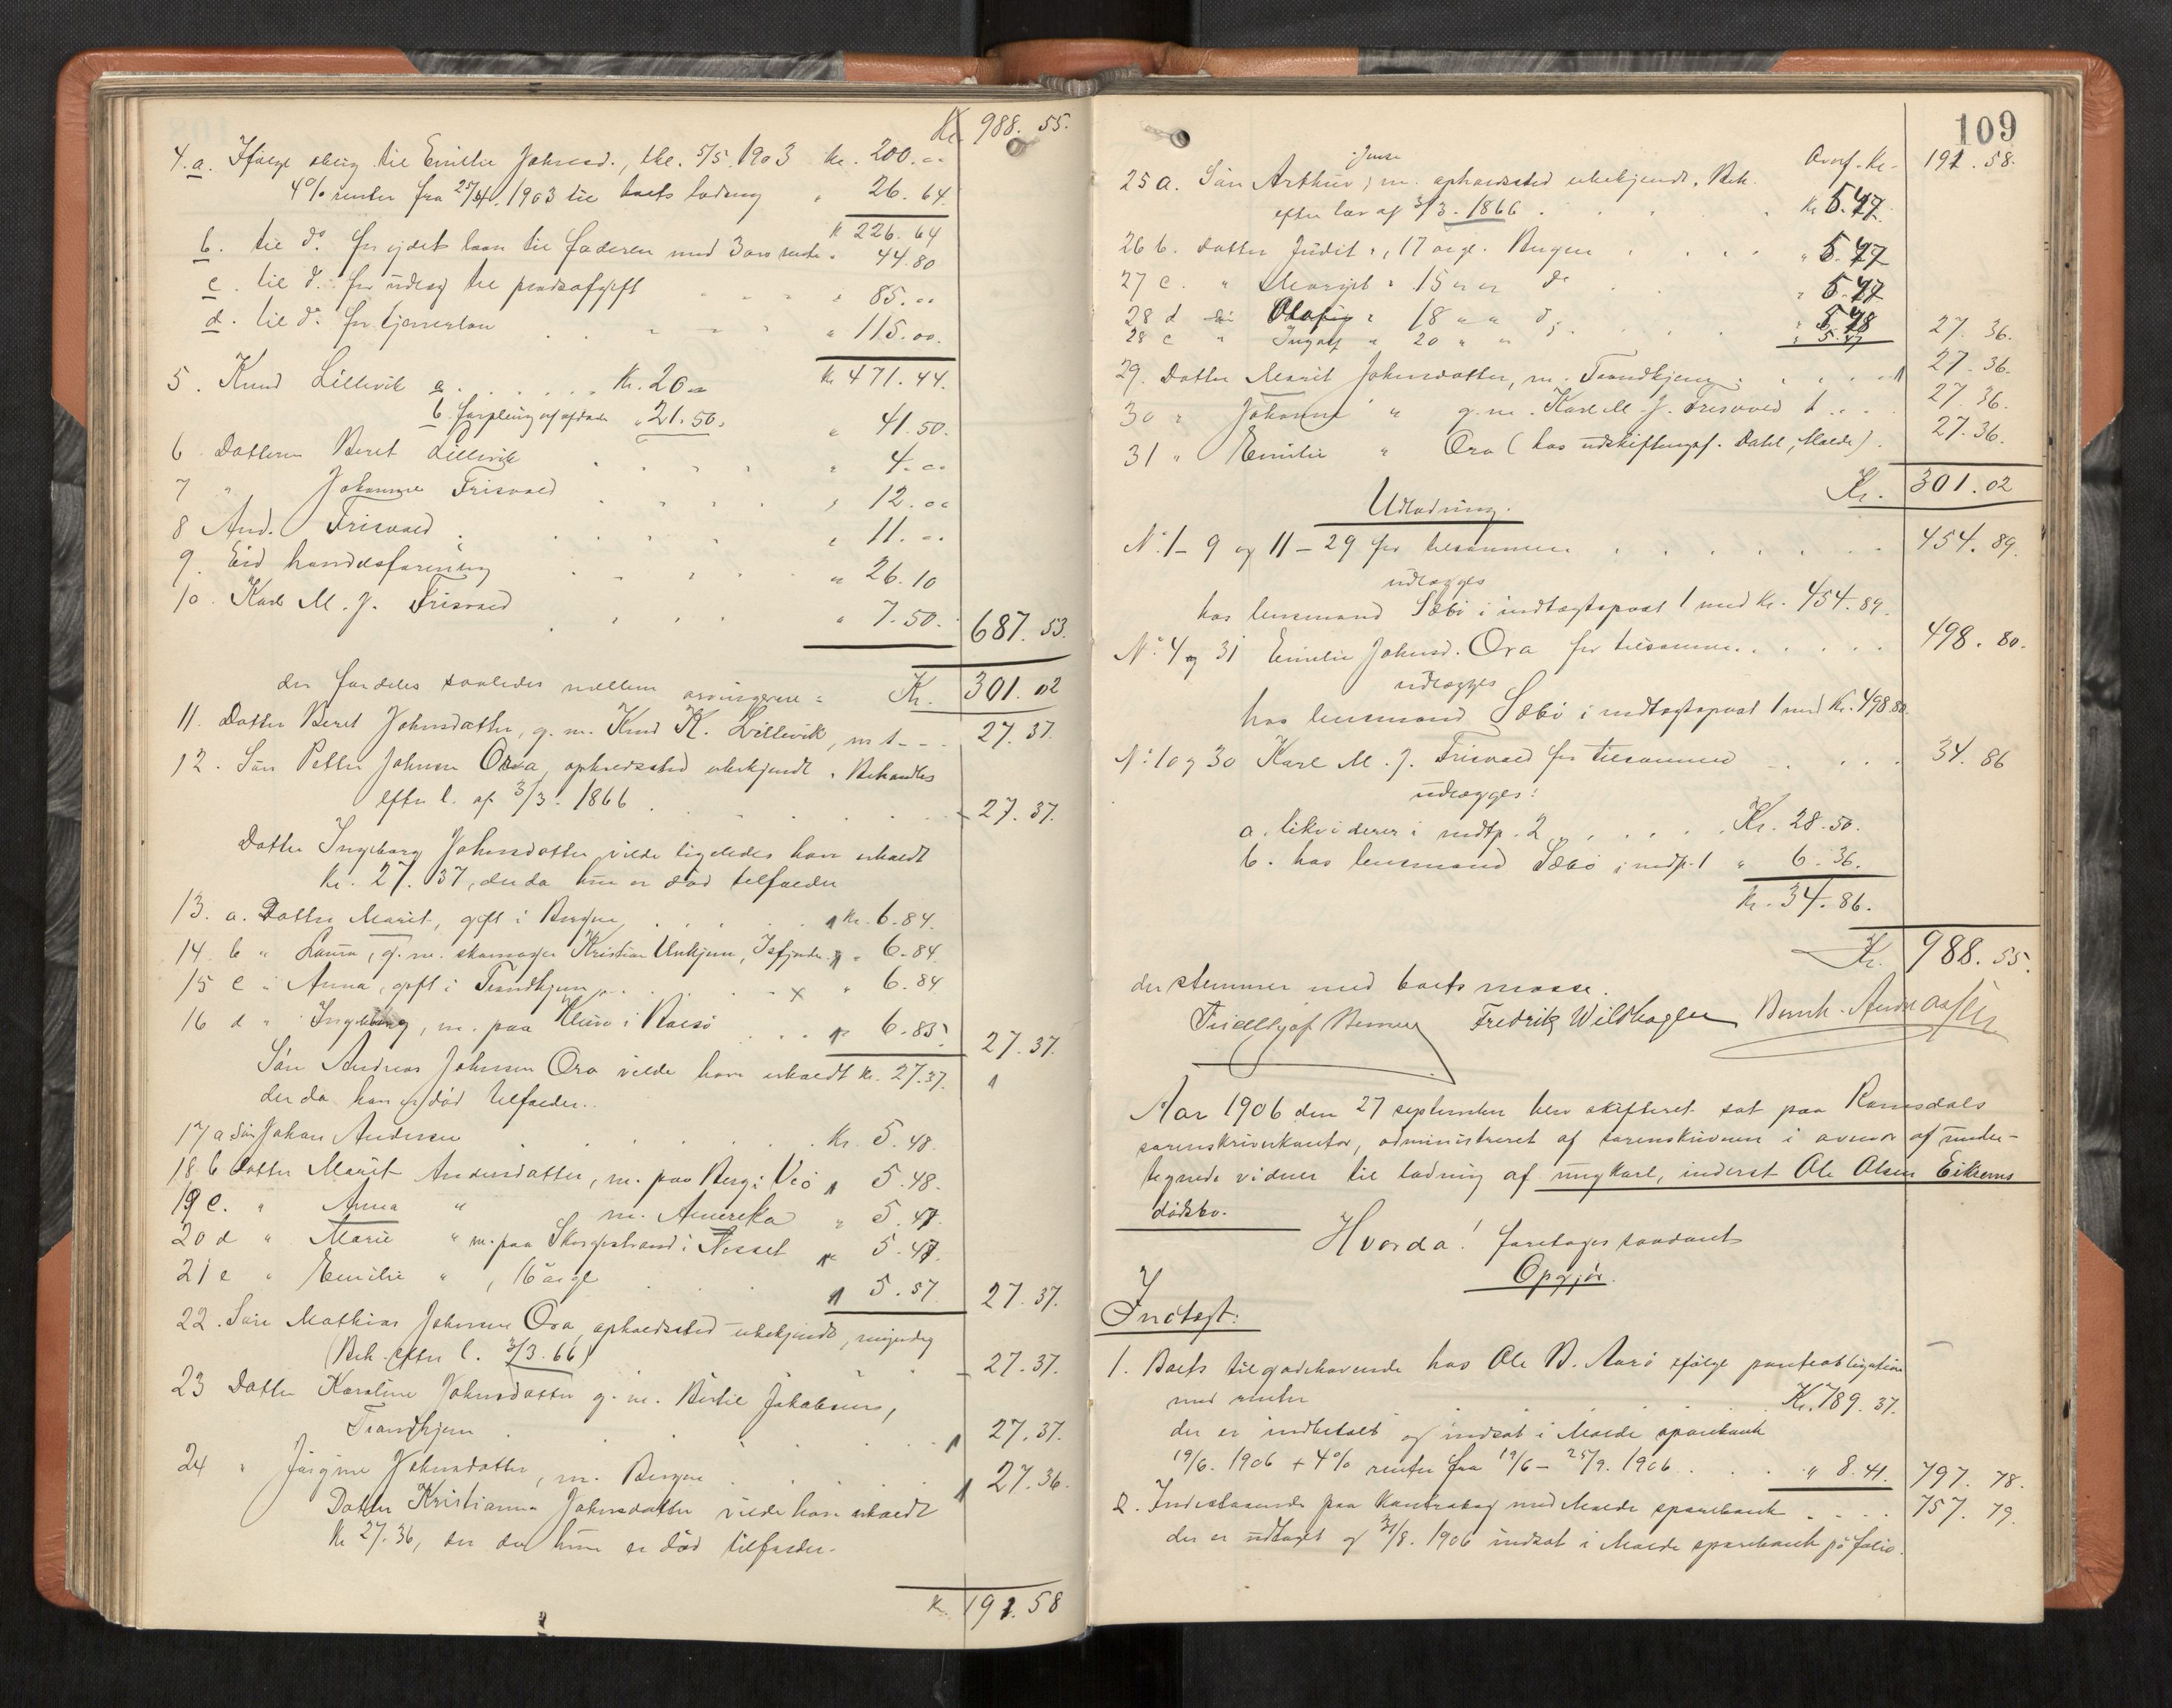 Kr. 988. 55.
4. a. Ifølge oblig. til Emilie Johnsd., tlr. 5/5. 1903 kr. 200. "
4% renter fra 25/4. 1903 til boets lodning " 26. 64.
kr 226. 64
b. til do. for ydet laan til faderen med 3 aars rente " 44. 80
c. til do. for udlæg til " 85. "
d. til do. for tjenerløn " 115. 00.
kr 471. 44.
5. Knud Lillevik a. Kr. 20 "
b. forpleining af afdøde " 21. 50. " 41. 50.
6 Datteren Beret Lillevik " 4. "
7 " Johanne Frisvold " 12. "
8 And. Frisvold " 11. "
9. Eid handelsforening " 26. 10
10. Karl M. J. Frisvold " 7. 50. 687. 53.
der fordeles saaledes mellem arvingerne: Kr. 301. 02
11. Datter Beret Johnsdatter, g. m. Knud K. Lillevik, 27. 37.
12. Søn Petter Johnsen Ora, opholdssted ubekjendt. Behandles
efter l. af 3/3. 1866 27. 37.
Datter Ingeborg Johnsdatter vilde ligeledes have erholdt
kr. 27. 37, der da hun er død tilfalder
13. a. Datter Marit, gift i Bergen kr. 6. 84.
14. b " Laura, g. m. skomager Kristian Unhjem, Isfjorden " 6. 84.
15 c " Anna, gift i Trondhjem x " 6. 84
16 d " Ingeborg, m. paa Kleive i Bolsø 6. 85. 27. 37.
Søn Andreas Johnsen Ora vilde have erholdt kr. 27. 37.
der da han er død tilfalder.
17 a Søn Johan Andersen Kr. 5. 48.
18. b Datter Marit Andersdatter, m. paa Berg i Veø 5. 48.
19 c. " Anna " m. Amerika " 5. 47.
20 d " Marie " m. paa Skorgestrand i Nesset 5. 47.
21 e " Emilie " , 16 aar gl. 5. 57. 27. 37.
22. Søn Mathias Johnsen Ora, opholdssted ubekjendt, myndig
(Beh. efter l. 3/3. 66) 27. 37.
23 Datter Karoline Johnsdatter g. m. Bertil Jakobsen,
Trondhjem 27. 37.
24 " Jørgine Johnsdatter, m. Bergen 27. 36.
Datter Kristianna Johnsdatter vilde have erholdt
kr 27. 36, der da hun er død tilfalder.
Kr. 191. 58
109
Overf. Kr. 191. 58.
Jense
25 a. Søn Arthur, m. opholdssted ubekjendt. Beh.
efter lov af 3/3. 1866 kr 5. 47
26 b. Datter Judit, 17 aar gl. Bergen " 5. 47
27 c. " Margit " 15 " " do " 5. 47
28 d Olafig " 18 " " do 5. 48 27. 36.
28 e " Ingolf " 20 " " " 5. 47
29. Datter Marit Johnsdatter, m. Trondhjem 27. 36.
30 " Johanne " g. m. Karl M. J. Frisvold 27. 36.
31 " Emilie " Ora (hos udskiftningsf. Dahl, Molde). 27. 36.
Kr. 301. 02
Udlodning.
No. 1 - 9 og 11 - 29 for tilsammen 454. 89.
udlægges
hos lensmand Sæbø i indtægtspost 1 med kr. 454. 89.
No. 4 og 31 Emilie Johnsd. Ora for tilsammen 498. 80.
udlægges
hos lensmand Sæbø i indtægtspost 1 med kr. 498 80.
No. 10 og 30 Karl M. J. Frisvold for tilsammen 34. 86
udlægges:
a. likviderer i indtp. 2 Kr. 28. 50.
b. hos lensmand Sæbø i indtp. 1 " 6. 36.
kr. 34. 86.
Kr. 988. 55.
der stemmer med boets masse.
Fredrik Wildhagen Bernh. Andreassen
Aar 1906 den 27 september blev skifteret sat paa Romsdals
sorenskriverkontor, administreret af sorenskriveren i overvær af under-
tegnede vidner til lodning af ungkarl, inderst Ole Olsen Eikrems
dødsbo.
Hvorda! foretages saadant
Opgjør.
I
Indtægt:
1. Boets tilgodehavende hos Ole B. Aarø ifølge panteobligation
med renter Kr. 789. 37.
der er indbetalt og indsat i Molde sparebank
19/6. 1906 + 4% renter fra 19/6 - 25/9. 1906 " 8. 41. 797. 78.
2. Indestaaende paa kontrabog med Molde sparebank 757. 79.
der er udtaget og 31/8. 1906 indsat i Molde sparebank på folio.